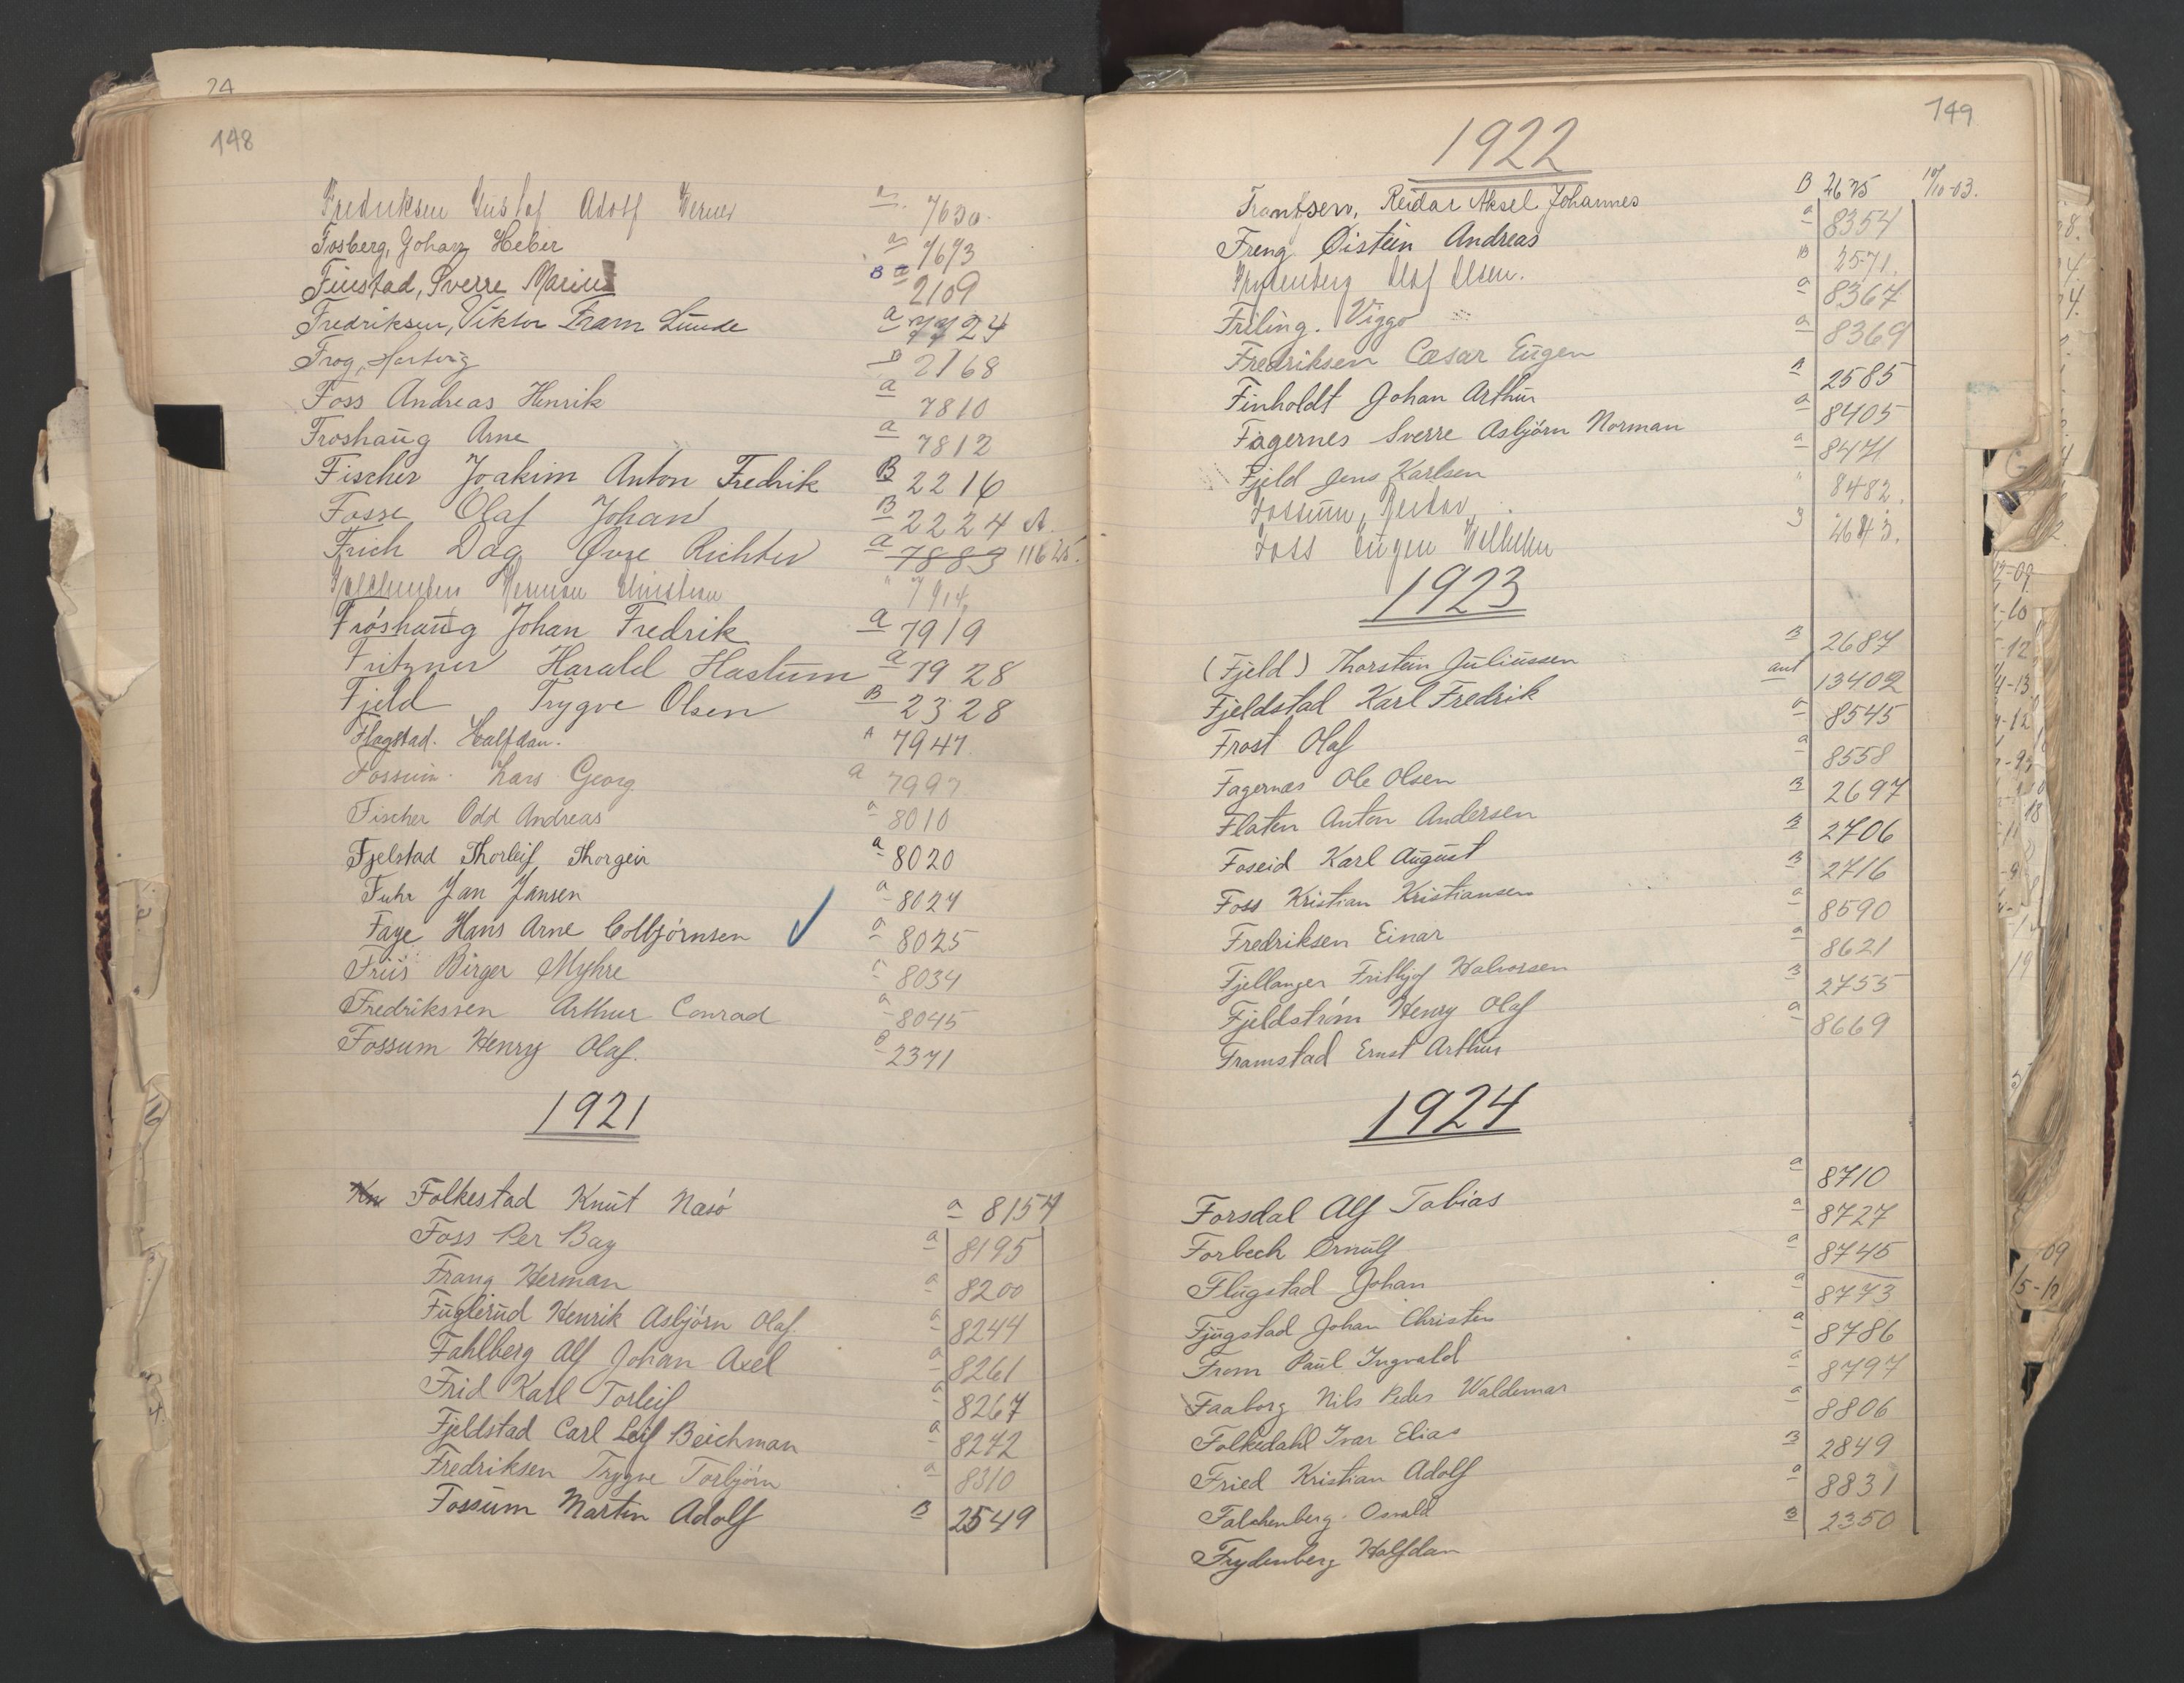 24
148
Fredriksen Gustaf Adolf Werner a 7630
Fosberg, Johan Heber a 7673
Finstad, Sverre Marius B a 2109
Fredriksen, Viktor Fram Lunde a 7724
Frog, Hartvig B 2168
Foss Andreas Henrik a 7810
Froshaug Arne a 7812
Fischer Joakim Anton Fredrik B 2216
Fosse Olaf Johan B 2224 A.
Frich Dag Øvre Richter a 7883 11625.
Herman Christian " 7914
Frøshaug Johan Fredrik a 7919
Fritzner Harald Hastum a 7928
Fjeld Trygve Olsen B 2328
Flagstad. Halfdan. A 7947.
Fossum. Lars Georg a 7997
Fischer Odd Andreas a 8010
Fjelstad Thorleif Thorgeir a 8020
Fuhr Jan Jansen a 8024
Faye Hans Arne Colbjørnsen a 8025
Friis Birger Myhre a 8034
Fredrikssen Arthur Conrad a 8045
Fossum Henry Olaf. B 2371
1921
Kn Folkestad Knut Nasø a 8154
Foss Per Bay a 8195
Frang Herman a 8200
Fuglerud Henrik Asbjørn Olaf. a 8244
Fahlberg Alf Johan Axel a 8261
Frid Karl Torleif a 8267
Fjeldstad Carl Leif Beichman a 8272
Fredriksen Trygve Torbjørn a 8310
Fossum Martin Adolf B 2549
149
1922
Frantsen, Reidar Aksel Johannes B 2625 10/10-03.
Freng Øistein Andreas a 8354
Frydenberg Olaf Olsen. B 2571.
Friling. Viggo a 8367
Fredriksen Cæsar Eugen a 8369
Finholdt Johan Arthur B 2585
Fagernes Sverre Asbjørn Norman a 8405
Fjeld Jens Karlsen a 8471
Fossum, " 8482.
Foss Eugen Wilhelm B 2643.
1923
(Fjeld) Thorstein Juliussen B 2687
Fjeldstad Karl Fredrik ant 13402
Frost Olaf a 8545
Fagernæs Ole Olsen a 8558
Flaten Anton Andersen B 2697
Foseid Karl August B 2706
Foss Kristian Kristiansen B 2716
Fredriksen Einar a 8590
Fjellanger Frithjof Halvorsen a 8621
Fjeldstrøm Henry Olaf B 2755
Framstad Ernst Arthur a 8669
1924
Forsdal Alf Tobias a 8710
Forbech Ørnulf a 8727
Flugstad Johan a 8745
Fjugstad Johan Christen a 8773
From Paul Ingvald a 8786
Faaborg Nils Peder Waldemar a 8797
Folkedahl Ivar Elias a 8806
Fried Kristian Adolf B 2849
Falchenberg. Osvald a 8831
Frydenberg Halfdan B 2350